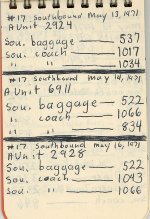 #17 Southbound May 13, 1971
A Unit 2924
Sou. baggage — 537
Sou. coach — 1017
" " — 1034
#17 Southbound May 14, 1971
A Unit 6911
Sou. baggage — 522
Sou. coach — 1066
" " — 834
#17 Southbound May 16, 1971
A Unit 2928
Sou. baggage — 522
Sou. coach — 1043
Sou " — 1066